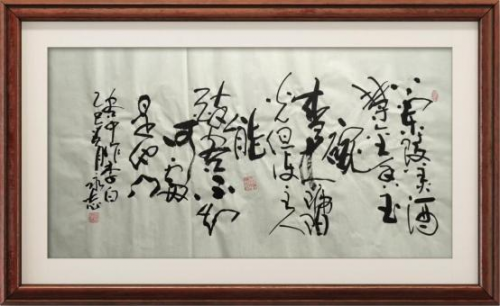 蘭陵美酒
鬱金香玉
碗
盛来琥珀
光但使主人
能
醉客不知
何處
是他乡
客中作李白
乙巳